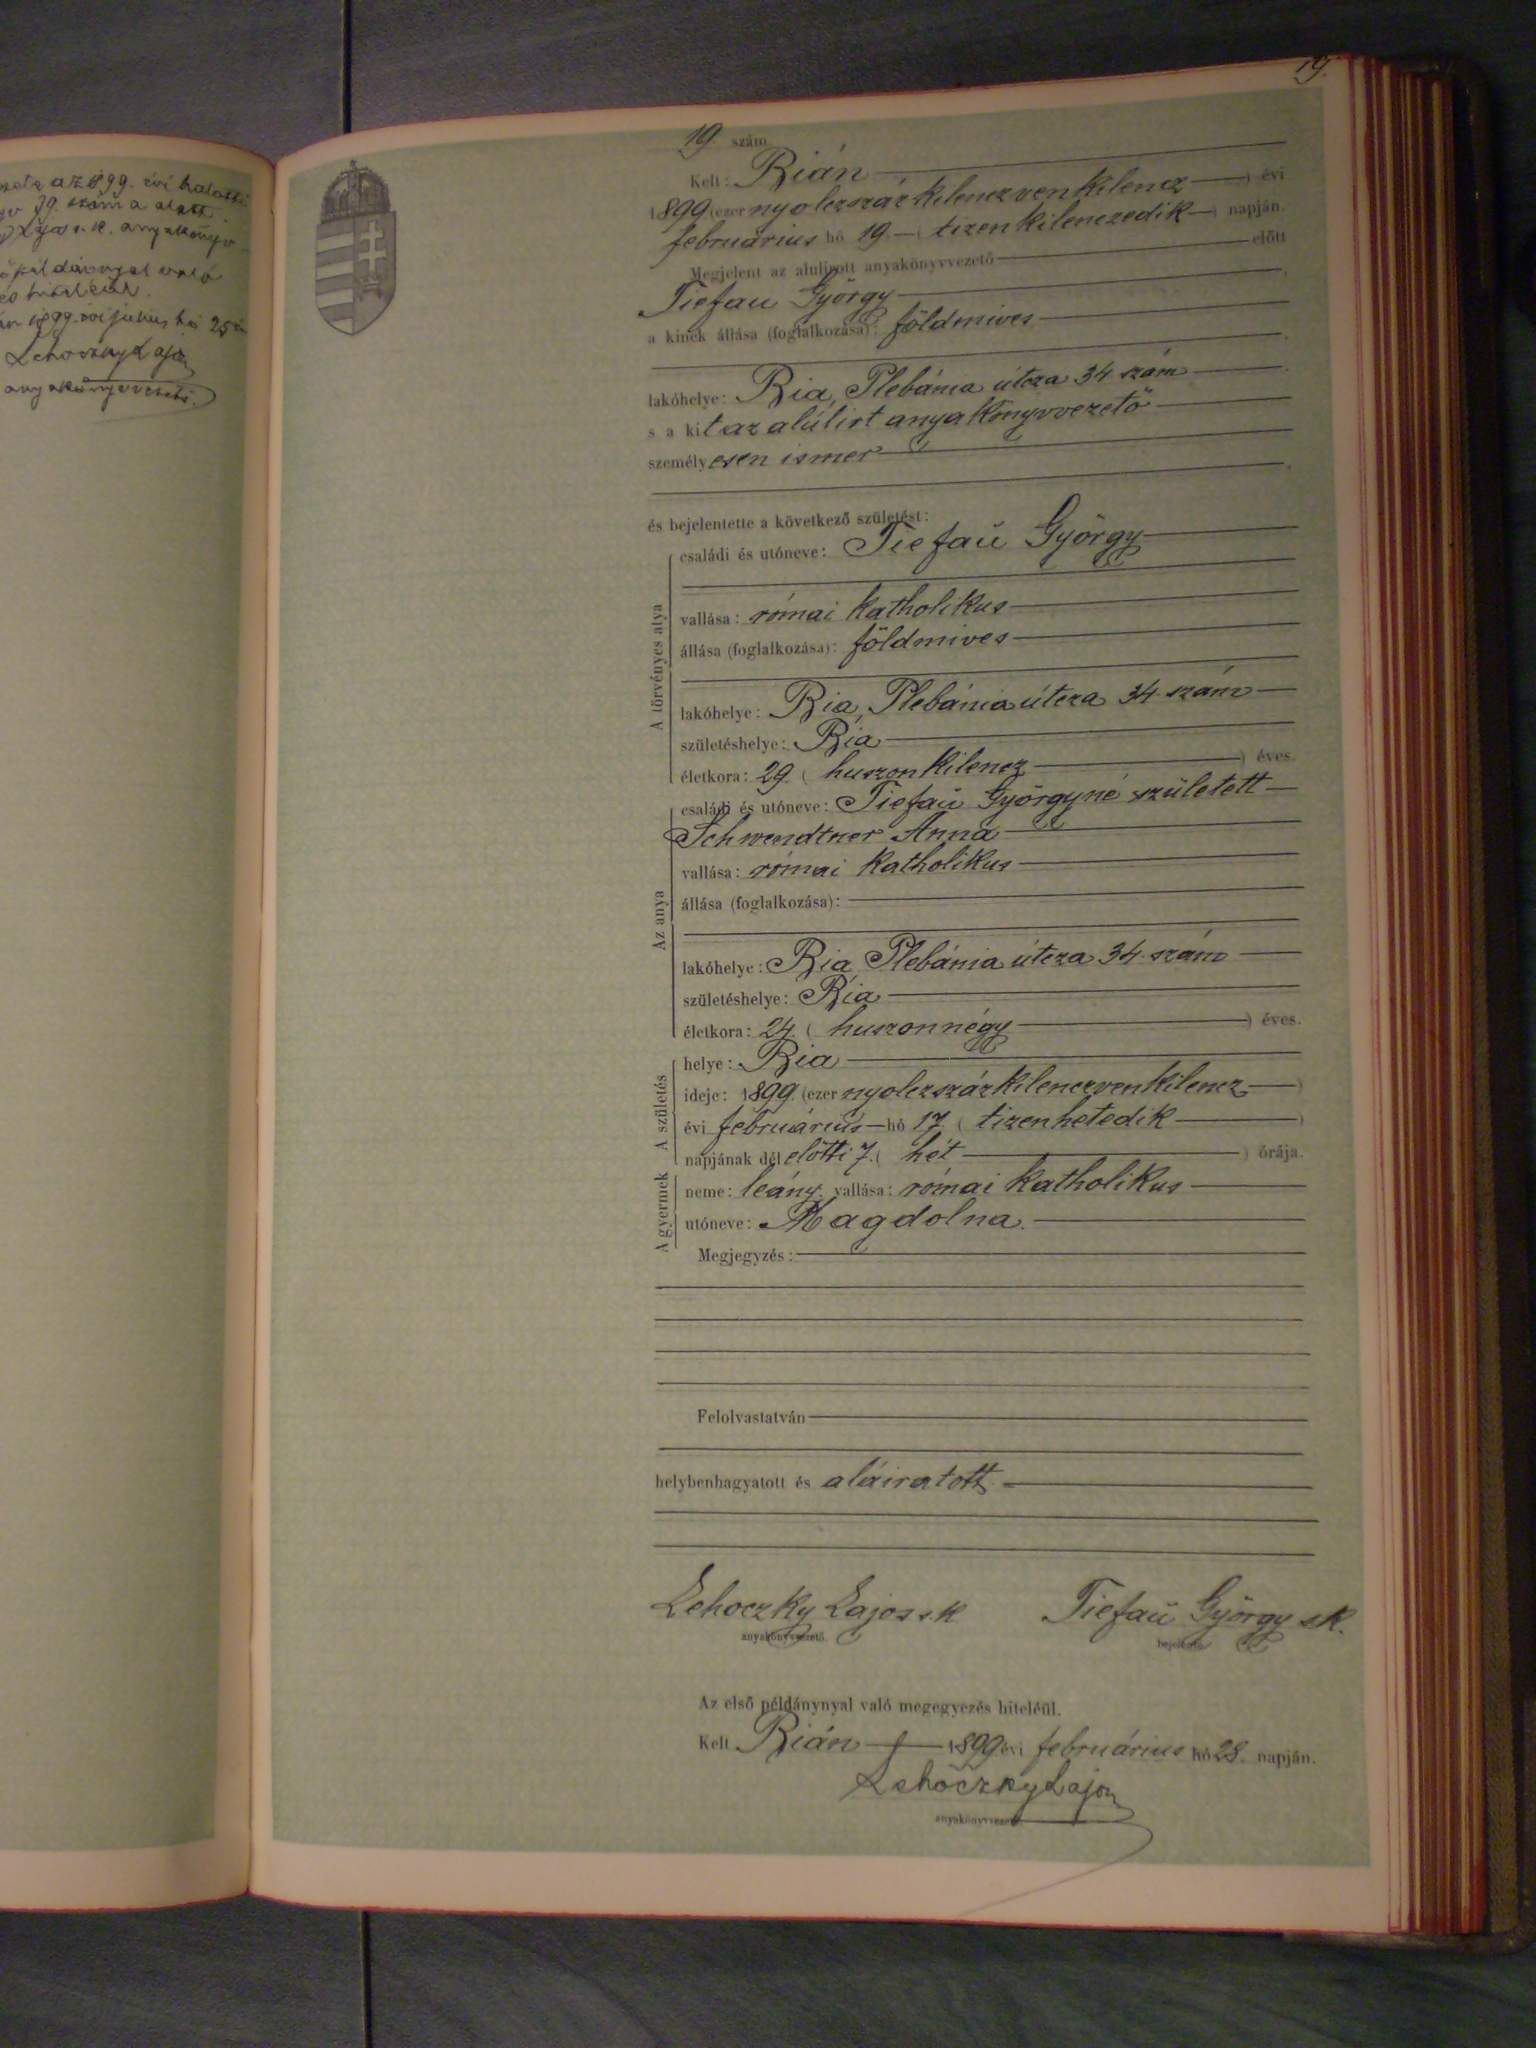 az 1899. évi halotti
szám a alatt.
anyakönyv
1899. évi július hó 25 én
Lehoczky Lajos
anyakönyvvezető.
19.
19. szám.
Kelt: Rián
1899 (ezer nyolczszáz kilenczven kilencz ) évi
februárius hó 19. ( tizenkilenczedik ) napján.
Megjelent az alulirott anyakönyvvezető előtt
Tiefau György
a kinek állása (foglalkozása): földmives
lakóhelye: Ria, Plebánia útcza 34 szám
s a kit az alúlirt anyakönyvvezető
személyesen ismer
és bejelentette a következő születést:
A törvényes atya
családi és utóneve: Tiefaŭ György
vallása: római katholikus
állása (foglalkozása): földmives
lakóhelye: Ria, Plebánia útcza 34. szám
születéshelye: Ria
életkora: 29. ( huszonkilencz ) éves.
Az anya
családi és utóneve: Tiefaŭ Györgyné született
Schwendtner Anna
vallása: római katholikus
állása (foglalkozása):
lakóhelye: Ria, Plebánia útcza 34. szám
születéshelye: Ria
életkora: 24. ( huszonnégy ) éves.
A születés
helye: Ria
ideje: 1899. (ezer nyolczszázkilenczvenkilencz )
évi februárius hó 17 ( tizenhetedik )
napjának délelőtti 7. ( hét ) órája.
A gyermek
neme: leány. vallása: római katholikus
utóneve: Magdolna.
Megjegyzés:
Felolvastatván
helybenhagyatott és aláiratott
Lehoczky Lajos s.k
Tiefaŭ György sk.
anyakönyvvezető.
bejelentő.
Az első példánynyal való megegyezés hiteléül.
Kelt Rián 1899 évi februárius hó 28. napján.
Lehoczky Lajos
anyakönyvvezető.